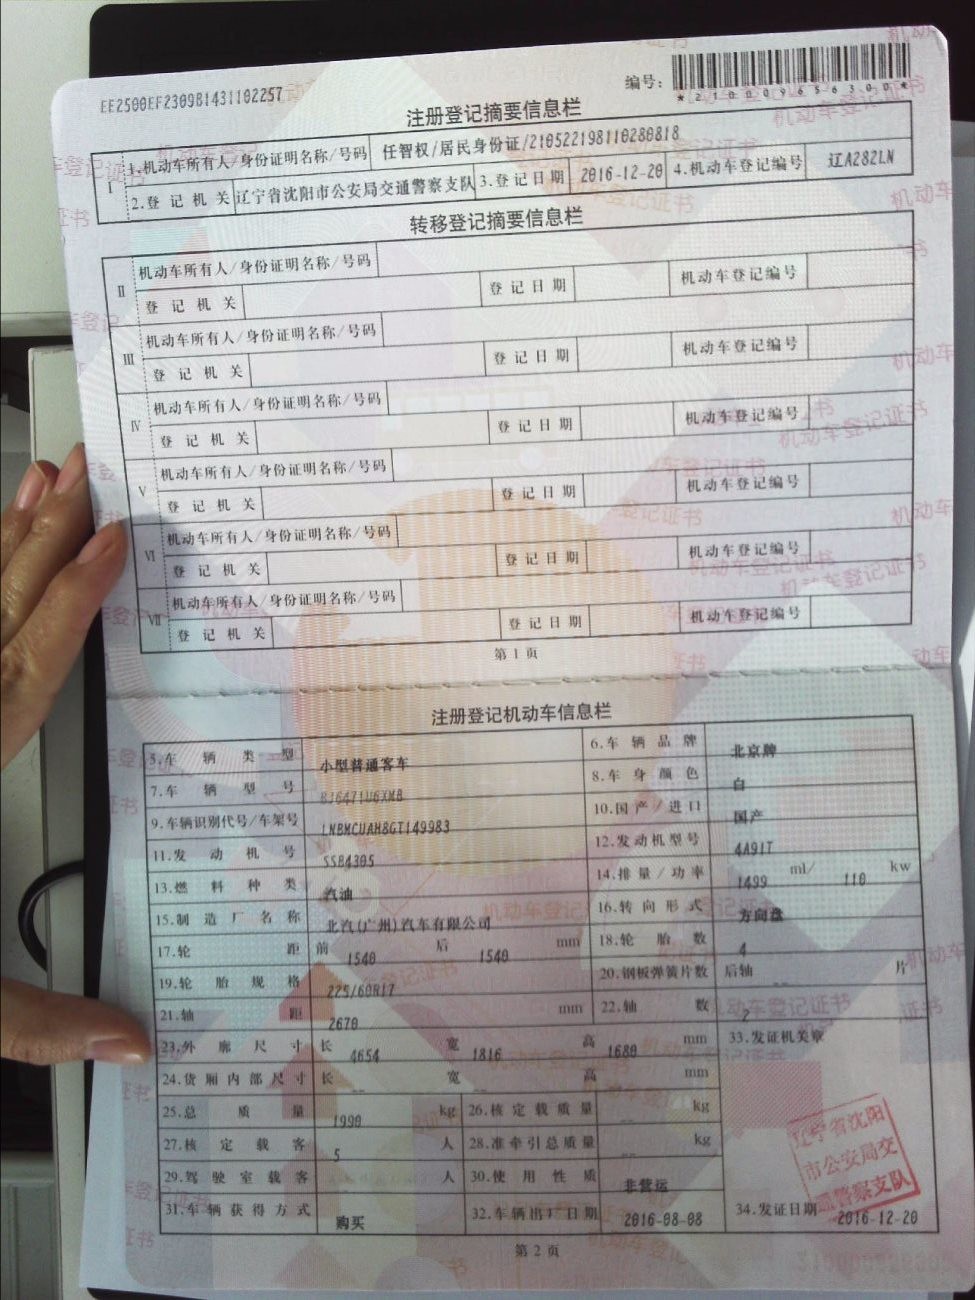 EE2500EF230981431102257
编号:
*210009656300*
注册登记摘要信息栏
I
1.机动车所有人/身份证明名称/号码 任智权/居民身份证/210522198110280818
2.登记机关 辽宁省沈阳市公安局交通警察支队 3.登记日期 2016-12-20 4.机动车登记编号 辽A282LN
转移登记摘要信息栏
II
机动车所有人/身份证明名称/号码
登记机关 登记日期 机动车登记编号
III
机动车所有人/身份证明名称/号码
登记机关 登记日期 机动车登记编号
IV
机动车所有人/身份证明名称/号码
登记机关 登记日期 机动车登记编号
V
机动车所有人/身份证明名称/号码
登记机关 登记日期 机动车登记编号
VI
机动车所有人/身份证明名称/号码
登记机关 登记日期 机动车登记编号
VII
机动车所有人/身份证明名称/号码
登记机关 登记日期 机动车登记编号
第1页
注册登记机动车信息栏
5.车辆类型 小型普通客车 6.车辆品牌 北京牌
7.车辆型号 BJ6471U6XMB 8.车身颜色 白
9.车辆识别代号/车架号 LNBMCUAH8GT149983 10.国产/进口 国产
11.发动机号 SSB4305 12.发动机型号 4A91T
13.燃料种类 汽油 14.排量/功率 1499 ml/ 110 kw
15.制造厂名称 北汽(广州)汽车有限公司 16.转向形式 方向盘
17.轮距 前 1540 后 1540 mm 18.轮胎数 4
19.轮胎规格 225/60R17 20.钢板弹簧片数 后轴 -- 片
21.轴距 2670 mm 22.轴数 2
23.外廓尺寸 长 4654 宽 1816 高 1680 mm 33.发证机关章
24.货厢内部尺寸 长 -- 宽 -- 高 -- mm
25.总质量 1990 kg 26.核定载质量 -- kg
27.核定载客 5 人 28.准牵引总质量 -- kg
29.驾驶室载客 -- 人 30.使用性质 非营运
31.车辆获得方式 购买 32.车辆出厂日期 2016-08-08 34.发证日期 2016-12-20
辽宁省沈阳
市公安局交
通警察支队
第2页